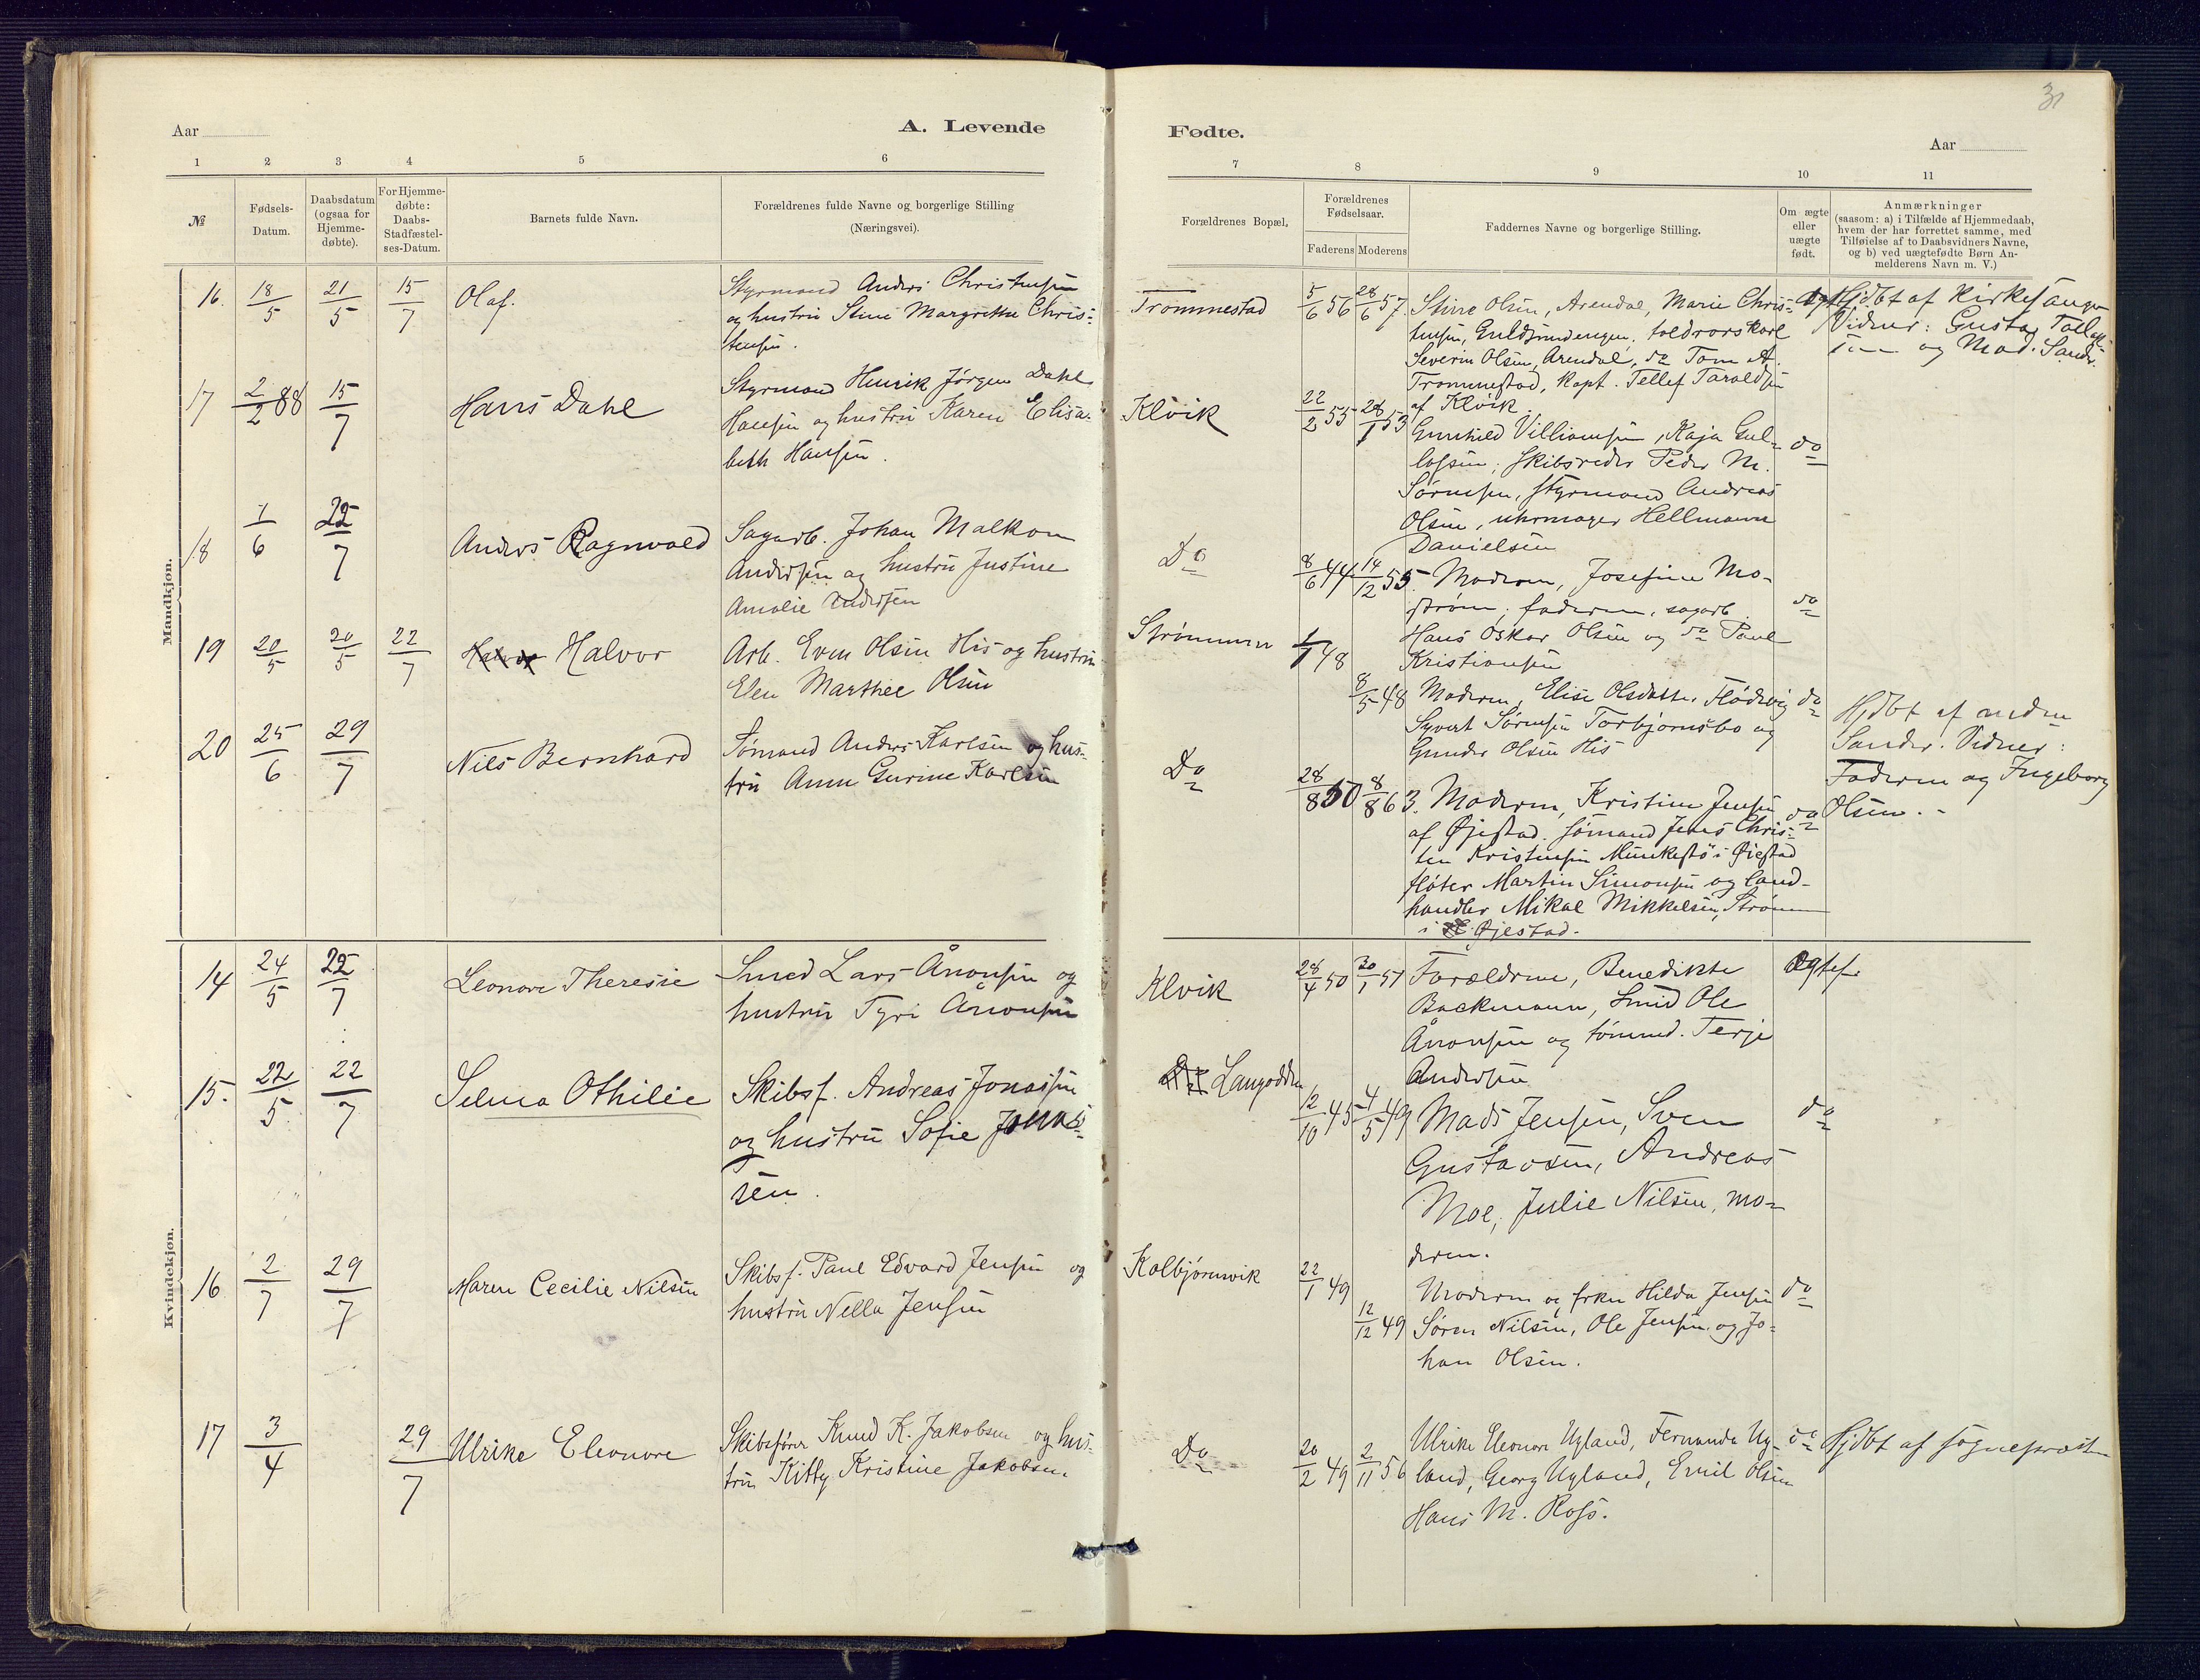 31
Aar
A. Levende
Fødte.
Aar
1 2 3 4 5 6 7 8 9 10 11
№
Fødsels-
Datum.
Daabsdatum
(ogsaa for
Hjemme-
døbte).
For Hjemme-
døbte:
Daabs-
Stadfæstel-
ses-Datum.
Barnets fulde Navn.
Forældrenes fulde Navne og borgerlige Stilling
(Næringsvei).
Forældrenes Bopæl.
Forældrenes
Fødselsaar.
Faderens Moderens
Faddernes Navne og borgerlige Stilling.
Om ægte
eller
uægte
født.
Anmærkninger
(saasom: a) i Tilfælde af Hjemmedaab,
hvem der har forrettet samme, med
Tilføielse af to Daabsvidners Navne,
og b) ved uægtefødte Børn An-
melderens Navn m. V.)
Mandkjøn.
16 18/5 21/5 15/7 Olaf.
Styrmand Anders Christensen
og hustru Stine Margrethe Chris-
tensen.
Trommestad
5/6 56 28/6 57.
Stine Olsen, Arendal, Marie Chris-
tensen, Guldsmedengen, toldrorskarl
Severin Olsen, Arendal, do Tom A.
Trommestad, kapt. Tellef Taraldsen
af Kløvik.
Hjdbt af Kirkesanger
Vidner: Gustav
og Mad.
17 2/2 88 15/7 Hans Dahl
Styrmand Henrik Jørgen Dahl
Hansen og hustru Karen Elisa-
beth Hansen.
Klövik
22/2 55 28/1 53
Gunhild Villiamsen, Kaja Gul-
lofsen; skibsreder Peder M.
Sørensen, styrmand Andreas
Olsen, uhrmager Hellmann
Danielsen
do
18 1/6 22/7 Anders Ragnvald
Sagarb. Johan Malkom
Andersen og hustru Justine
Amalie Andersen
Do
8/6 44 14/12 55.
Moderen, Josefine Mo-
strøm; faderen, sagarb.
Hans Oskar Olsen og do Paul
Kristiansen
do
19 20/5 20/5 22/7 Halvor
Arb. Even Olsen His og hustru
Elen Marthee Olsen
Strømmen
1/1 48
8/5 48
Moderen, Elise Olsdatter Flødevig
Syvert Sørensen Torbjørnsbo og
Gunder Olsen His
do
Hjdbt af
Sander. Vidner:
Faderen og Ingeborg
Olsen.
20 25/6 29/7 Nils Bernhard
Sømand Anders Karlsen og hus-
tru Anne Gurine Karlsen
Do
28/8 50 8/8 63.
Moderen, Kristine Jensen
af Øjestad. sømand Jens Chris-
ten Kristensen Munkestø i Øiestad
fløter Martin Simonsen og land-
handler Mikal Mikkelsen, Strømm
i Øjestad.
do
Kvindekjøn.
14 24/5 22/7 Leonore Theresie
Smed Lars Ånonsen og
hustru Tyri Ånonsen
Klvik
28/4 50 30/1 51
Forældrene, Benedikte
Backmann, Smed Ole
Ånonsen og tømmd. Terje
Andersen
Ægtef.
15. 22/5 22/7 Selma Othilie
Skibsf. Andreas Jonassen
og hustru Sofie Jonas-
sen.
Langodden
12/10 45 4/5 49
Mads Jensen, Sven
Gustavsen, Andreas
Moe; Julie Nilsen, mo-
deren.
do
16 2/7 29/7 Maren Cecilie Nilsen
Skibsf. Paul Edvard Jensen og
hustru Nella Jensen
Kolbjørnsvik
22/1 49
12/12 49
Moderen og frkn Hilda Jensen
Søren Nilsen, Ole Jensen og Jo-
han Olsen.
do
17 3/4 29/7 Ulrike Eleonore
Skibsfører Knud K. Jakobsen og hus-
tru Kitty Kristine Jakobsen.
Do
20/2 49 2/11 56
Ulrike Eleonore Ugland, Fernanda Ug-
land, Georg Ugland, Emil Olsen
Hans M. Ross.
do
Hjdbt af sognepræsten